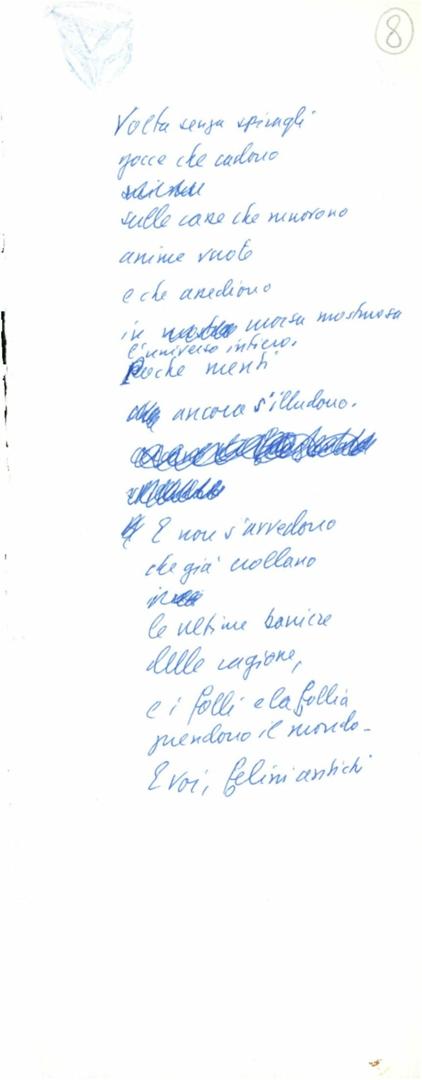 8
Volta senza spiragli
gocce che cadono
sulle case che murorono
anime vuote
e che assediono
in morsa mostruosa
l'universo intiero.
Poche menti
ancora s'illudono.
E non s'avvedono
che già crollano
le ultime barriere
della ragione,
e i folli e la follia
prendono il mondo.
E voi, felini antichi